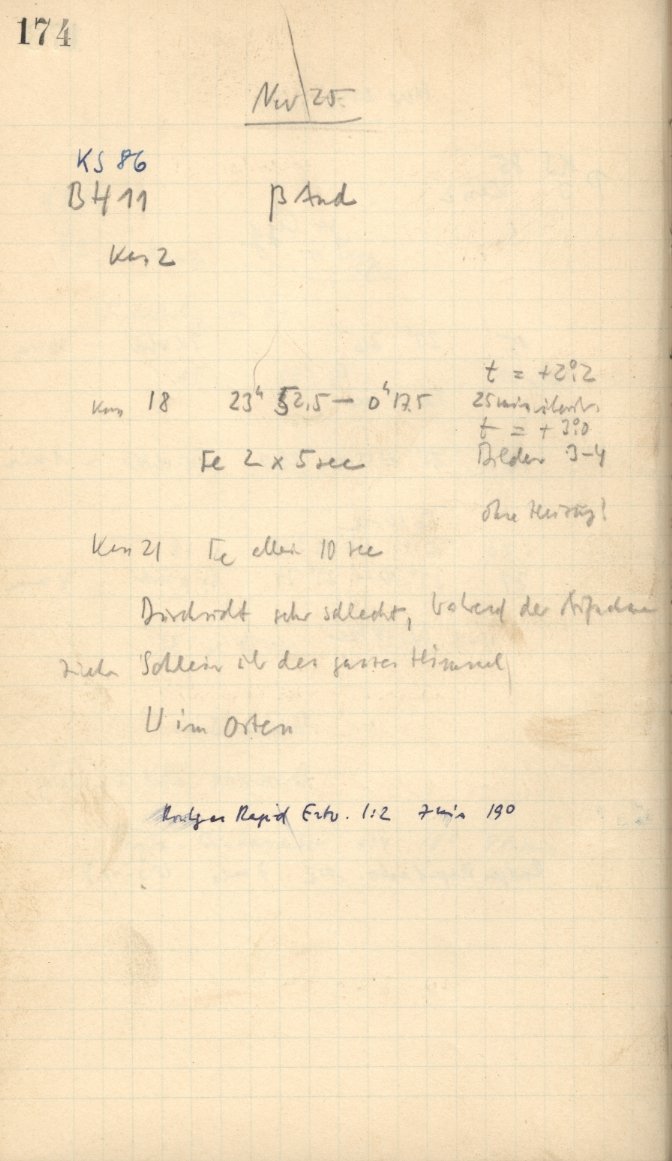 174
Nov 25
KS 86
BH 11 β And
Kass 2
t = +2°,2
Kass 18 23ʰ 52,5 – 0ʰ 17,5 25 min
t = + 3°,0
Fe 2 x 5 sec Bilder 3-4
ohne Heizung!
Kass 21 Fe allein 10 sec
Durchsicht sehr schlecht, während der Aufnahme
Schleier üb den ganzen Himmel
U im Osten
Rapid Extr. 1:2 7 min 19°